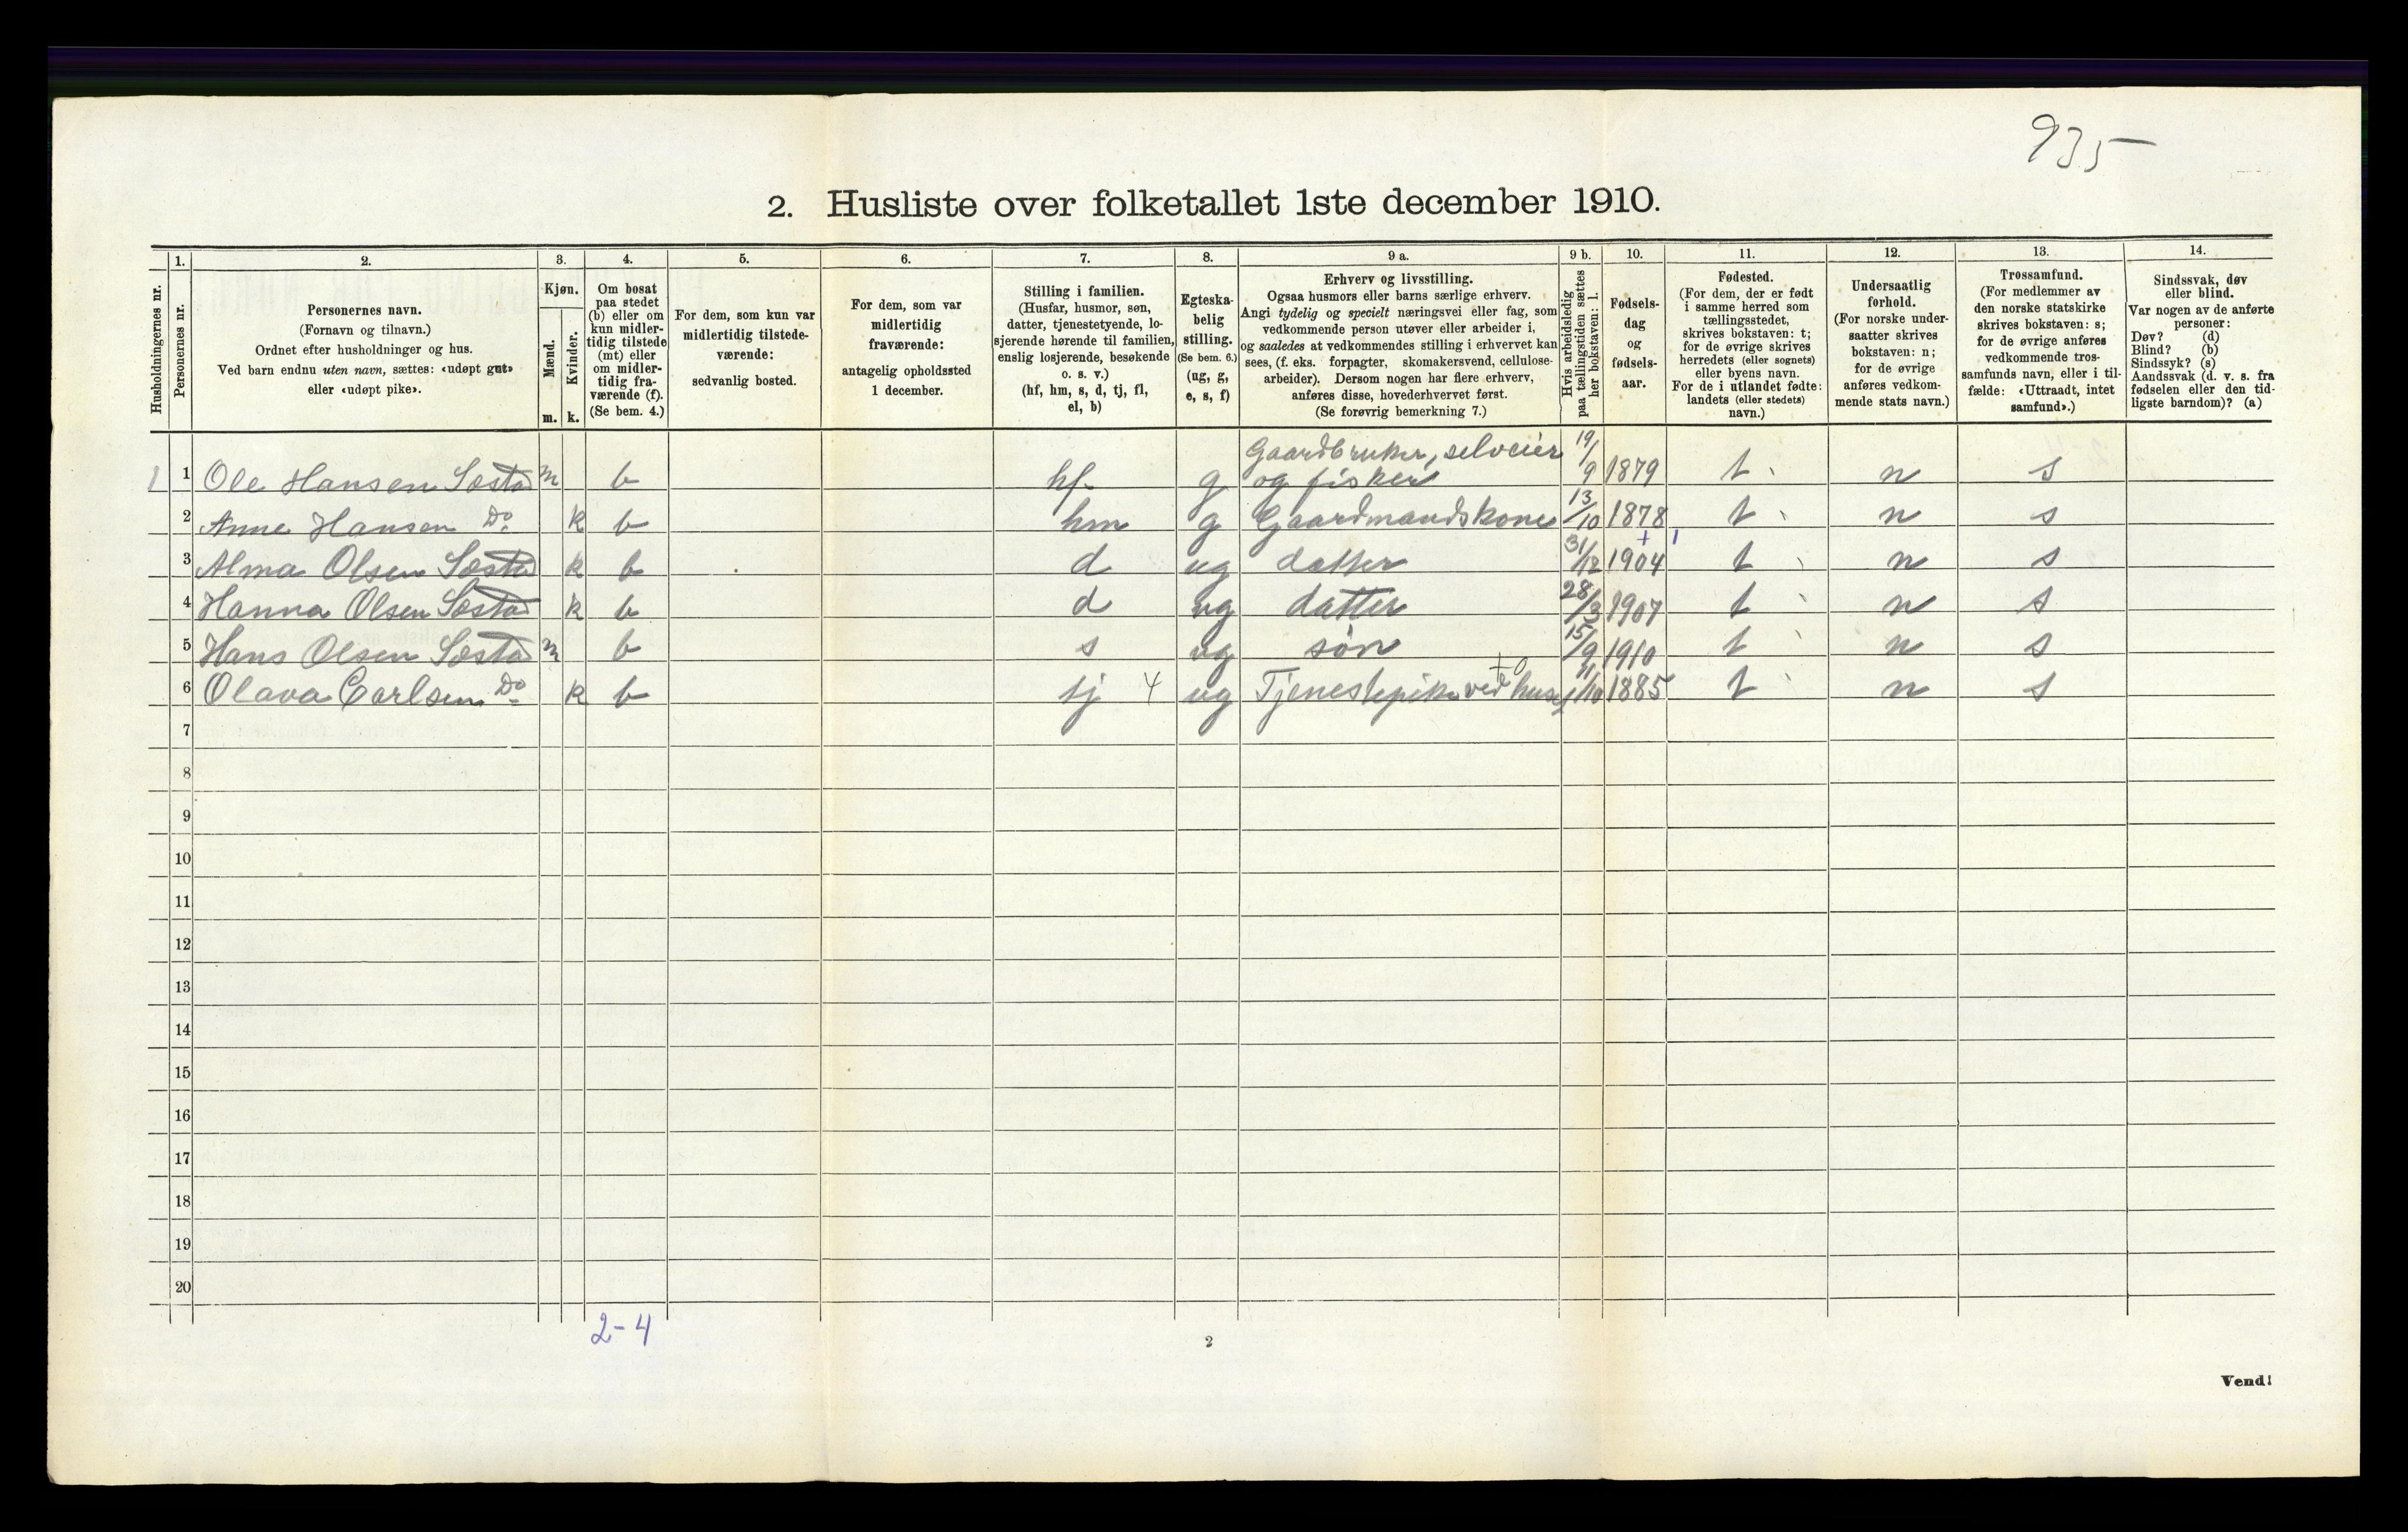 935
2. Husliste over folketallet 1ste december 1910.
Husholdningernes nr.
1.
Personernes nr.
2.
Personernes navn.
(Fornavn og tilnavn.)
Ordnet efter husholdninger og hus.
Ved barn endnu uten navn, sættes: «udøpt gut»
eller «udøpt pike».
3.
Kjøn.
Mænd.
m.
Kvinder.
k.
4.
Om bosat
paa stedet
(b) eller om
kun midler-
tidig tilstede
(mt) eller
om midler-
tidig fra-
værende (f).
(Se bem. 4.)
5.
For dem, som kun var
midlertidig tilstede-
værende:
sedvanlig bosted.
6.
For dem, som var
midlertidig
fraværende:
antagelig opholdssted
1 december.
7.
Stilling i familien.
(Husfar, husmor, søn,
datter, tjenestetyende, lo-
sjerende hørende til familien,
enslig losjerende, besøkende
o. s. v.)
(hf, hm, s, d, tj, fl,
el, b)
8.
Egteska-
belig
stilling.
(Se bem. 6.)
(ug, g,
e, s, f)
9 a.
Erhverv og livsstilling.
Ogsaa husmors eller barns særlige erhverv.
Angi tydelig og specielt næringsvei eller fag, som
vedkommende person utøver eller arbeider i,
og saaledes at vedkommendes stilling i erhvervet kan
sees, (f. eks. forpagter, skomakersvend, cellulose-
arbeider). Dersom nogen har flere erhverv,
anføres disse, hovederhvervet først.
(Se forøvrig bemerkning 7.)
9 b.
Hvis arbeidsledig
paa tællingstiden sættes
her bokstaven: l.
10.
Fødsels-
dag
og
fødsels-
aar.
11.
Fødested.
(For dem, der er født
i samme herred som
tællingsstedet,
skrives bokstaven: t;
for de øvrige skrives
herredets (eller sognets)
eller byens navn.
For de i utlandet fødte:
landets (eller stedets)
navn.)
12.
Undersaatlig
forhold.
(For norske under-
saatter skrives
bokstaven: n;
for de øvrige
anføres vedkom-
mende stats navn.)
13.
Trossamfund.
(For medlemmer av
den norske statskirke
skrives bokstaven: s;
for de øvrige anføres
vedkommende tros-
samfunds navn, eller i til-
fælde: «Uttraadt, intet
samfund».)
14.
Sindssvak, døv
eller blind.
Var nogen av de anførte
personer:
Døv? (d)
Blind? (b)
Sindssyk? (s)
Aandssvak (d. v. s. fra
fødselen eller den tid-
ligste barndom)? (a)
Gaardbruker, selveier
1 1 Ole Hansen Sæstad m b hf g og fisker 19/9 1879 t n s
2 Anne Hansen Do k b hm g Gaardmandskone 13/10 1878 t n s
3 Alma Olsen Sæstad k b d ug datter 31/12 1904 t n s
4 Hanna Olsen Sæstad k b d ug datter 28/3 1907 t n s
5 Hans Olsen Sæstad m b s ug søn 15/9 1910 t n s
6 Olava Carlsen Do k b tj 4 ug Tjenestepike ved huse 11/10 1885 t n s
7
8
9
10
11
12
13
14
15
16
17
18
19
20
2-4
2
Vend!